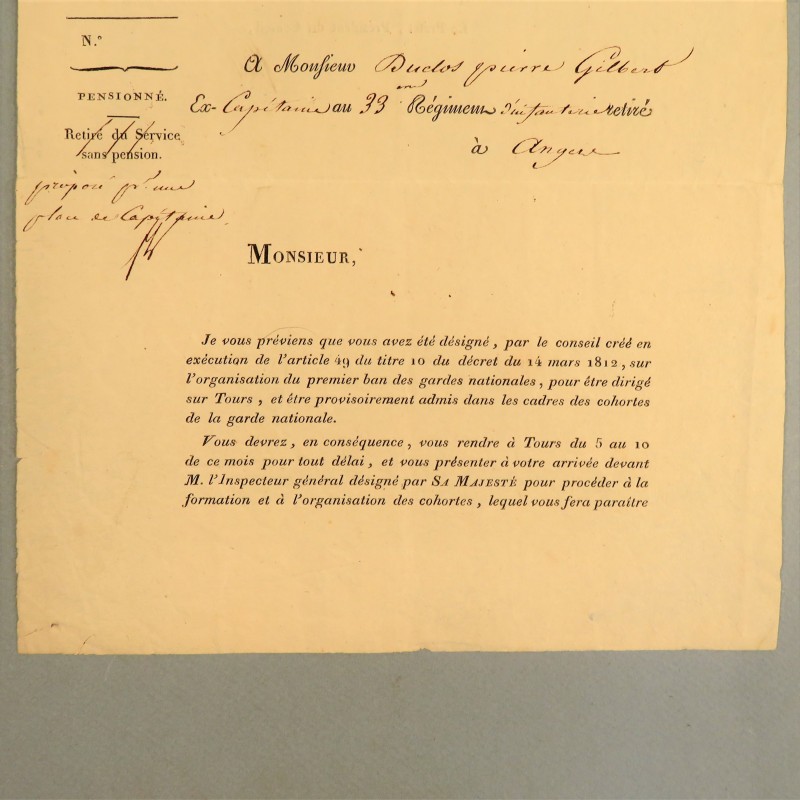 N.°
PENSIONNÉ.
Retiré du Service
sans pension.
proposé pr. une
place de Capitaine.
A Monsieur Duclos pierre Gilbert
Ex-Capitaine au 33 eme Régiment d'infanterie retiré
à Angers
MONSIEUR,
Je vous préviens que vous avez été désigné, par le conseil créé en
exécution de l'article 49 du titre 10 du décret du 14 mars 1812, sur
l'organisation du premier ban des gardes nationales, pour être dirigé
sur Tours, et être provisoirement admis dans les cadres des cohortes
de la garde nationale.
Vous devrez, en conséquence, vous rendre à Tours du 5 au 10
de ce mois pour tout délai, et vous présenter à votre arrivée devant
M. l'Inspecteur général désigné par SA MAJESTÉ pour procéder à la
formation et à l'organisation des cohortes, lequel vous fera paraître